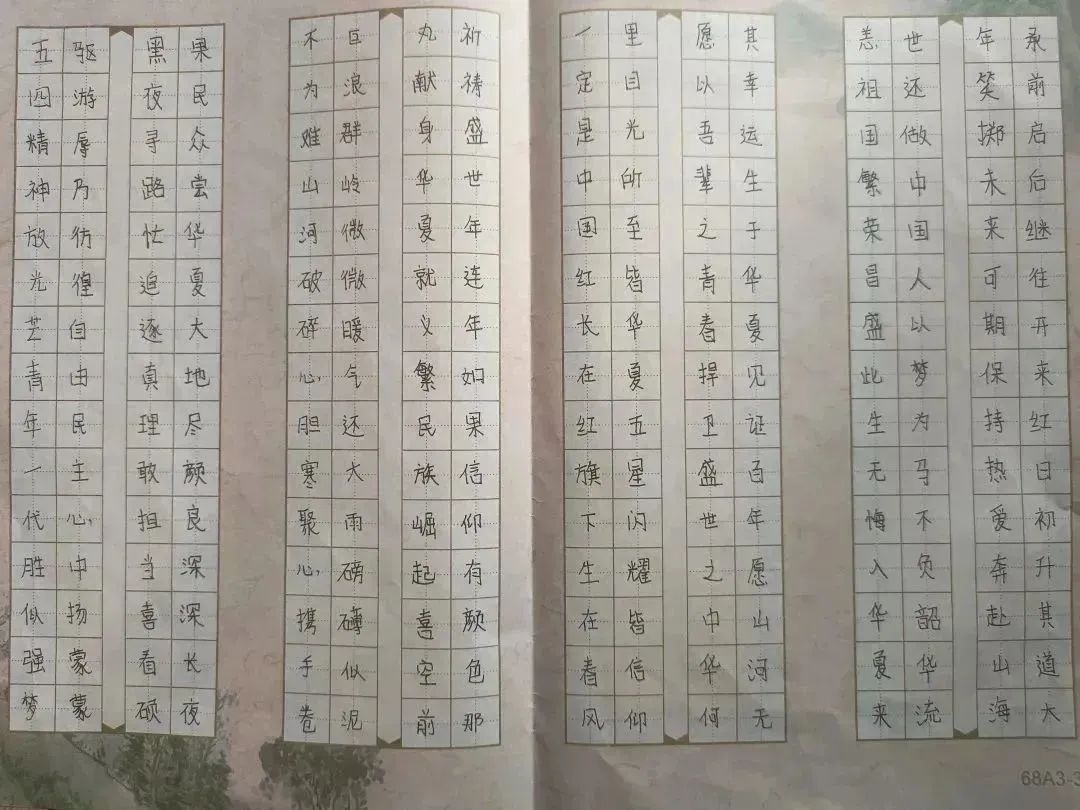 五四精神放光芒青年一代胜似强梦
驱游辱乃彷徨自由民主心中扬蒙蒙
黑夜寻路忙追逐真理敢担当喜看硕
果民众尝华夏大地尽颜良深深长夜
不为难山河破碎心胆寒聚心携手卷
巨浪群岭微微暖气还大雨磅礴似泥
丸献身华夏就义繁民族崛起喜空前
祈祷盛世年连年如果信仰有颜色那
一定是中国红长在红旗下生在春风
里目光所至皆华夏五星闪耀皆信仰
愿以吾辈之青春捍卫盛世之中华何
其幸运生于华夏见证百年愿山河无
恙祖国繁荣昌盛此生无悔入华夏来
世还做中国人以梦为马不负韶华流
年笑掷未来可期保持热爱奔赴山海
承前启后继往开来红日初升其道大
68A3-3